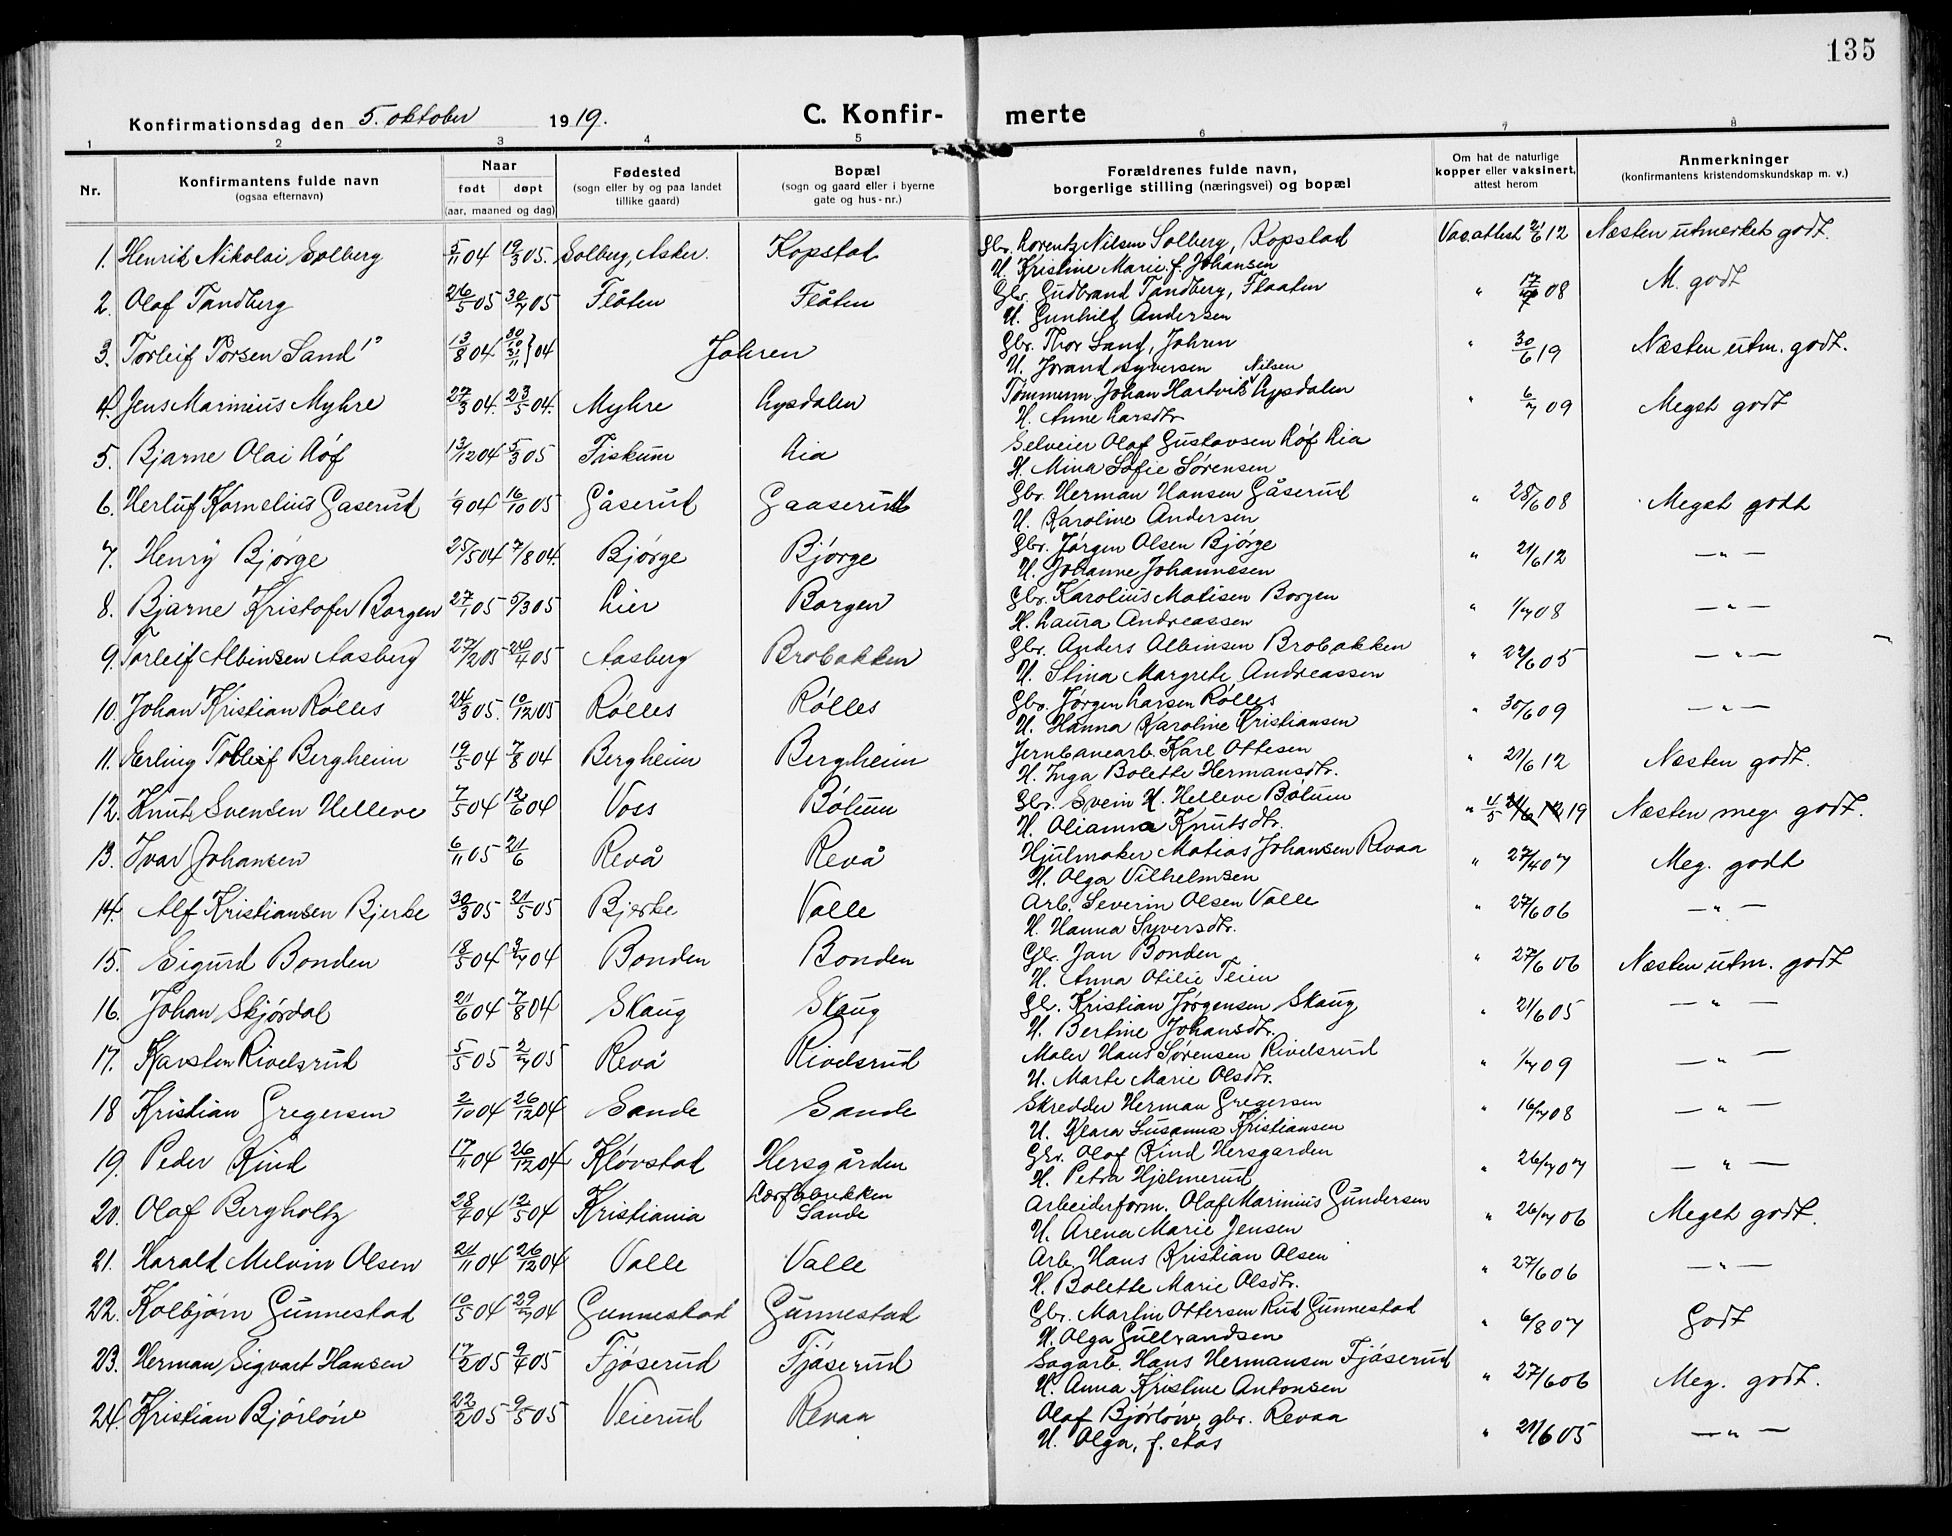 135
Konfirmationsdag den 5. oktober 1919.
C. Konfirmerte
1 2 3 4 5 6 7 8
Nr. | Konfirmantens fulde navn (ogsaa efternavn) | Naar født døpt (aar, maaned og dag) | Fødested (sogn eller by og paa landet tillike gaard) | Bopæl (sogn og gaard eller i byerne gate og hus-nr.) | Forældrenes fulde navn, borgerlige stilling (næringsvei) og bopæl | Om hat de naturlige kopper eller vaksinert, attest herom | Anmerkninger (konfirmantens kristendomskundskap m. v.)
1. Henrik Nikolai Solberg | 5/11 04 | 19/3 05. | Solberg, Asker. | Kopstad | Gbr. Lorentz Nilsen Solberg, Kopstad | Vac.attest 21/6 12 | Næsten utmerket godt.
H. Kristine Marie f. Johansen
2. Olaf Tandberg | 26/5 05 | 30/7 05 | Flåten | Flåten | Gbr. Gudbrand Tandberg, Flaaten | " 17/7 08 | M. godt
H. Gunhild Andersen
3. Torleif Torsen Sand | 13/8 04 | 30/10 31/11 } 04 | Johren | Gbr. Thor Sand, Johren | " 30/6 19 | Næsten utm. godt.
H. Jorand Syversen
4. Jens Marinius Myhre | 27/3 04. | 23/5 04. | Myhre | Lysdalen | Tømmerm. Johan Hartvik Nilsen Lysdalen | " 6/7 09 | Meget godt
H. Anne Larsdtr.
5. Bjarne Olai Róf | 13/12 04 | 5/3 05 | Fiskum | Lia | Selveier Olaf Gustavsen Róf Lia
H. Mina Sofie Sørensen
6. Herluf Kornelius Gaserud | 1/9 04 | 16/10 05 | Gåserud | Gaaserud | Gbr. Herman Hansen Gåserud | " 28/6 08 | Meget godt
H. Karoline Andersen
7. Henry Bjørge | 25/5 04 | 7/8 04. | Bjørge | Bjørge | Gbr. Jørgen Olsen Bjørge | " 21/6 12 | — " —
H. Johanne Johannesen
8. Bjarne Kristofer Borgen | 27/1 05 | 5/3 05 | Lier | Borgen | Gbr. Karolius Matisen Borgen | " 1/7 08 | — " —
H. Laura Andreassen
9. Torleif Albinsen Aasberg | 27/2 05 | 24/4 05 | Aasberg | Brobakken | Gbr. Anders Albinsen Brobakken | " 22/6 05 | — " —
H. Stina Margrete Andreassen
10. Johan Kristian Rólles | 24/3 05. | 10/12 05 | Rólles | Rólles | Gbr. Jørgen Larsen Rólles | " 30/6 09 | — " —
H. Hanna Karoline Kristiansen
11. Erling Tolleif Bergheim | 19/5 04 | 7/8 04 | Bergheim | Bergheim | Jernbanearb. Karl Ottesen | " 21/6 12 | Næsten godt.
H. Inga Bolette Hermansdtr.
12. Knut Svensen Helleve | 7/5 04 | 12/6 04 | Voss | Bólum | Gbr. Svein H. Helleve Bolum | " 4/5 21/6 12 19 | Næsten meg. godt.
H. Olianna Knutsdtr.
13. Ivar Johansen | 6/11 05 | 21/6 | Revå | Revå | Hjulmaker Matias Johansen Revaa | " 27/4 07 | Meg. godt
H. Olga Vilhelmsen
14. Alf Kristiansen Bjerke | 30/3 05 | 21/5 05 | Bjerke | Valle | Arb. Severin Olsen Valle | " 27/6 06 | — " —
H. Hanna Syversdtr.
15. Sigurd Bonden | 18/5 04 | 3/7 04 | Bonden | Bonden | Gbr. Jan Bonden | " 27/6 06 | Næsten utm. godt
H. Anna Otilie Teien
16. Johan Skjørdal | 21/6 04 | 7/8 04 | Skaug | Skaug | Gbr. Kristian Jørgensen Skaug | " 21/6 05 | — " —
H. Bertine Johansdtr.
17. Karsten Rivelsrud | 5/5 05 | 2/7 05 | Revå | Rivelsrud | Maler Hans Sørensen Rivelsrud | " 1/7 09 | — " —
H. Marte Marie Olsdtr.
18 Kristian Gregersen | 2/10 04 | 26/12 04 | Sande | Sande | Skredder Herman Gregersen | " 16/7 08 | — " —
H. Klara Susanna Kristiansen
19. Peder Kind | 17/11 04 | 26/12 04 | Kløvstad | Hersgården | Gbr. Olaf Kind Hersgarden | " 26/7 07 | — " —
H. Petra Hjelmerud
20. Olaf Bergholtz | 28/4 04 | 12/5 04 | Kristiania | Lærfabrikken Sande | Arbeiderform. Olaf Marinius Gundersen | " 26/7 06 | Meget godt.
H. Arena Marie Jensen
21. Harald Melvin Olsen | 21/11 04 | 26/12 04 | Valle | Valle | Arb. Hans Kristian Olsen | " 27/6 06 | — " —
H. Bolette Marie Olsdtr.
22. Kolbjørn Gunnestad | 10/5 04 | 29/7 04 | Gunnestad | Gunnestad | Gbr. Martin Ottersen Rud Gunnestad | " 6/8 07 | Godt
H. Olga Gulbrandsen
23. Herman Sigvart Hansen | 17/2 05 | 9/4 05 | Fjøserud | Fjøserud | Sagarb. Hans Hermansen Fjøserud | " 27/6 06 | Meg. godt.
H. Anna Kristine Antonsen
24. Kristian Bjørløw | 22/2 05 | 9/5 05 | Veierud | Revaa | Olaf Bjørløw, gbr. Revaa | " 21/6 05 | — " —
H. Olga, f. Aas